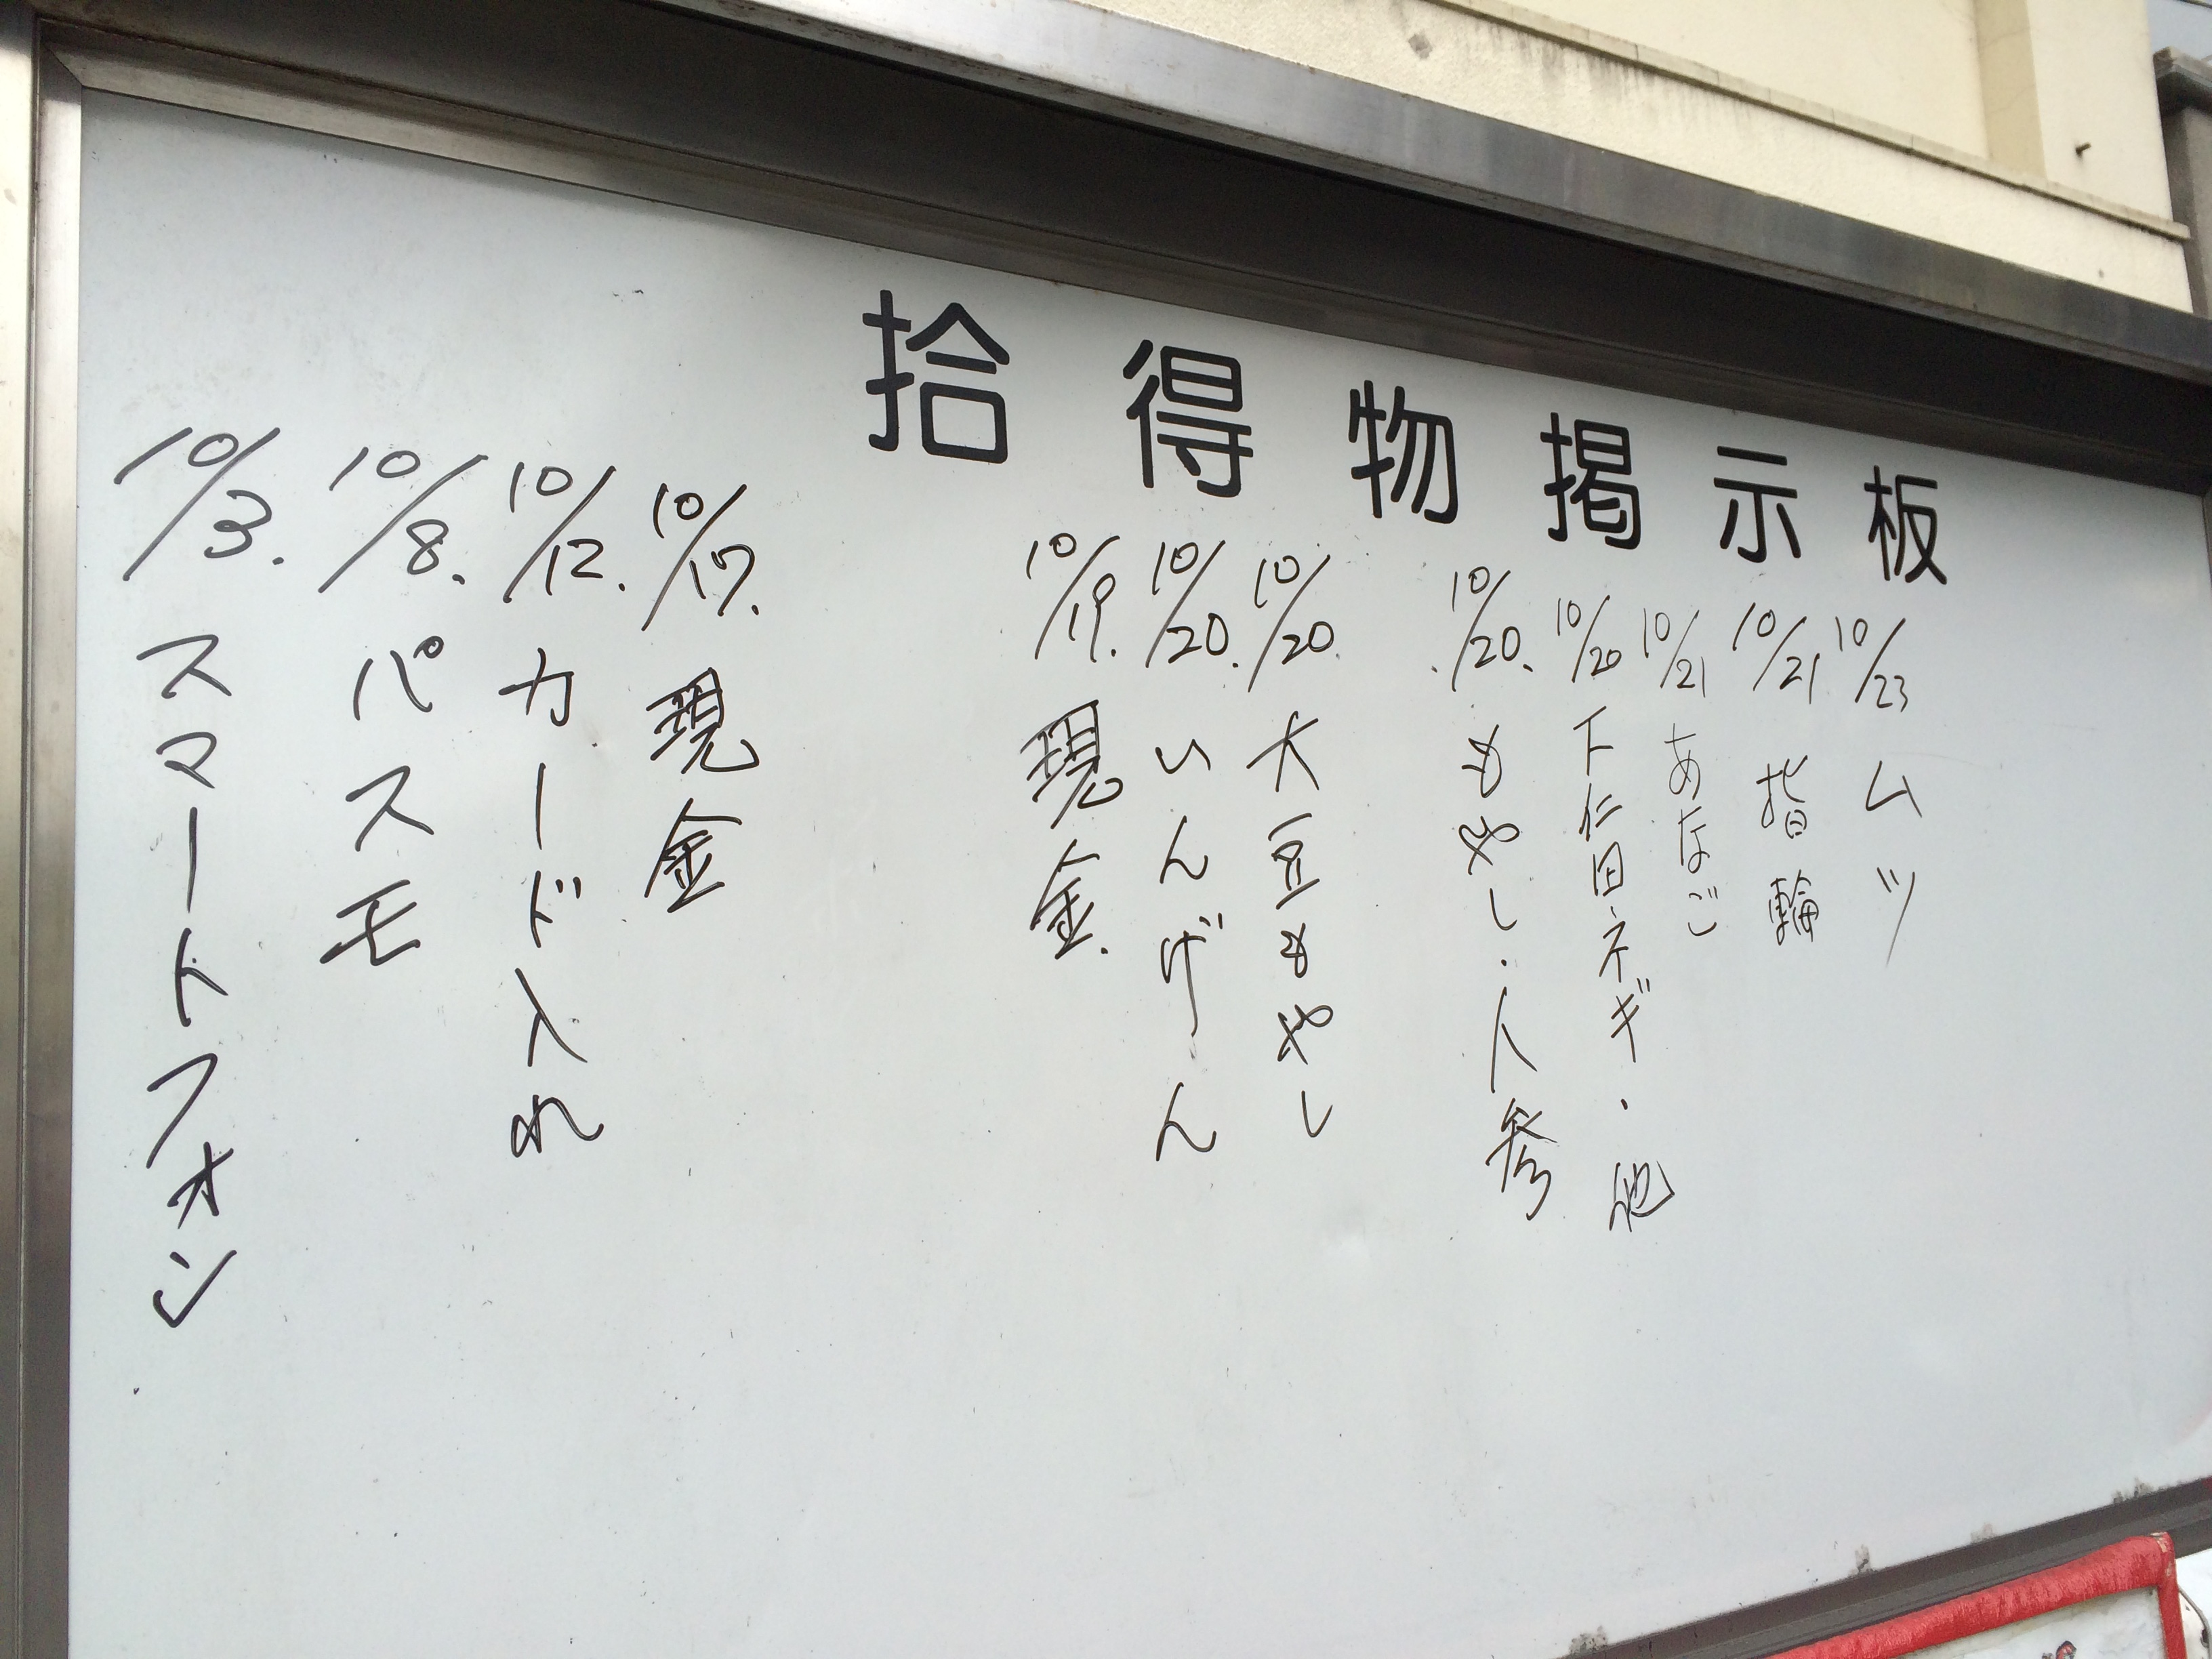 拾得物掲示板
10/3. スマートフォン
10/8. パスモ
10/12. カード入れ
10/17. 現金
10/19. 現金.
10/20. いんげん
10/20. 大豆もやし
10/20. もやし・人参
10/20 下仁田ネギ・他
10/21 あなご
10/21 指輪
10/23 ムツ